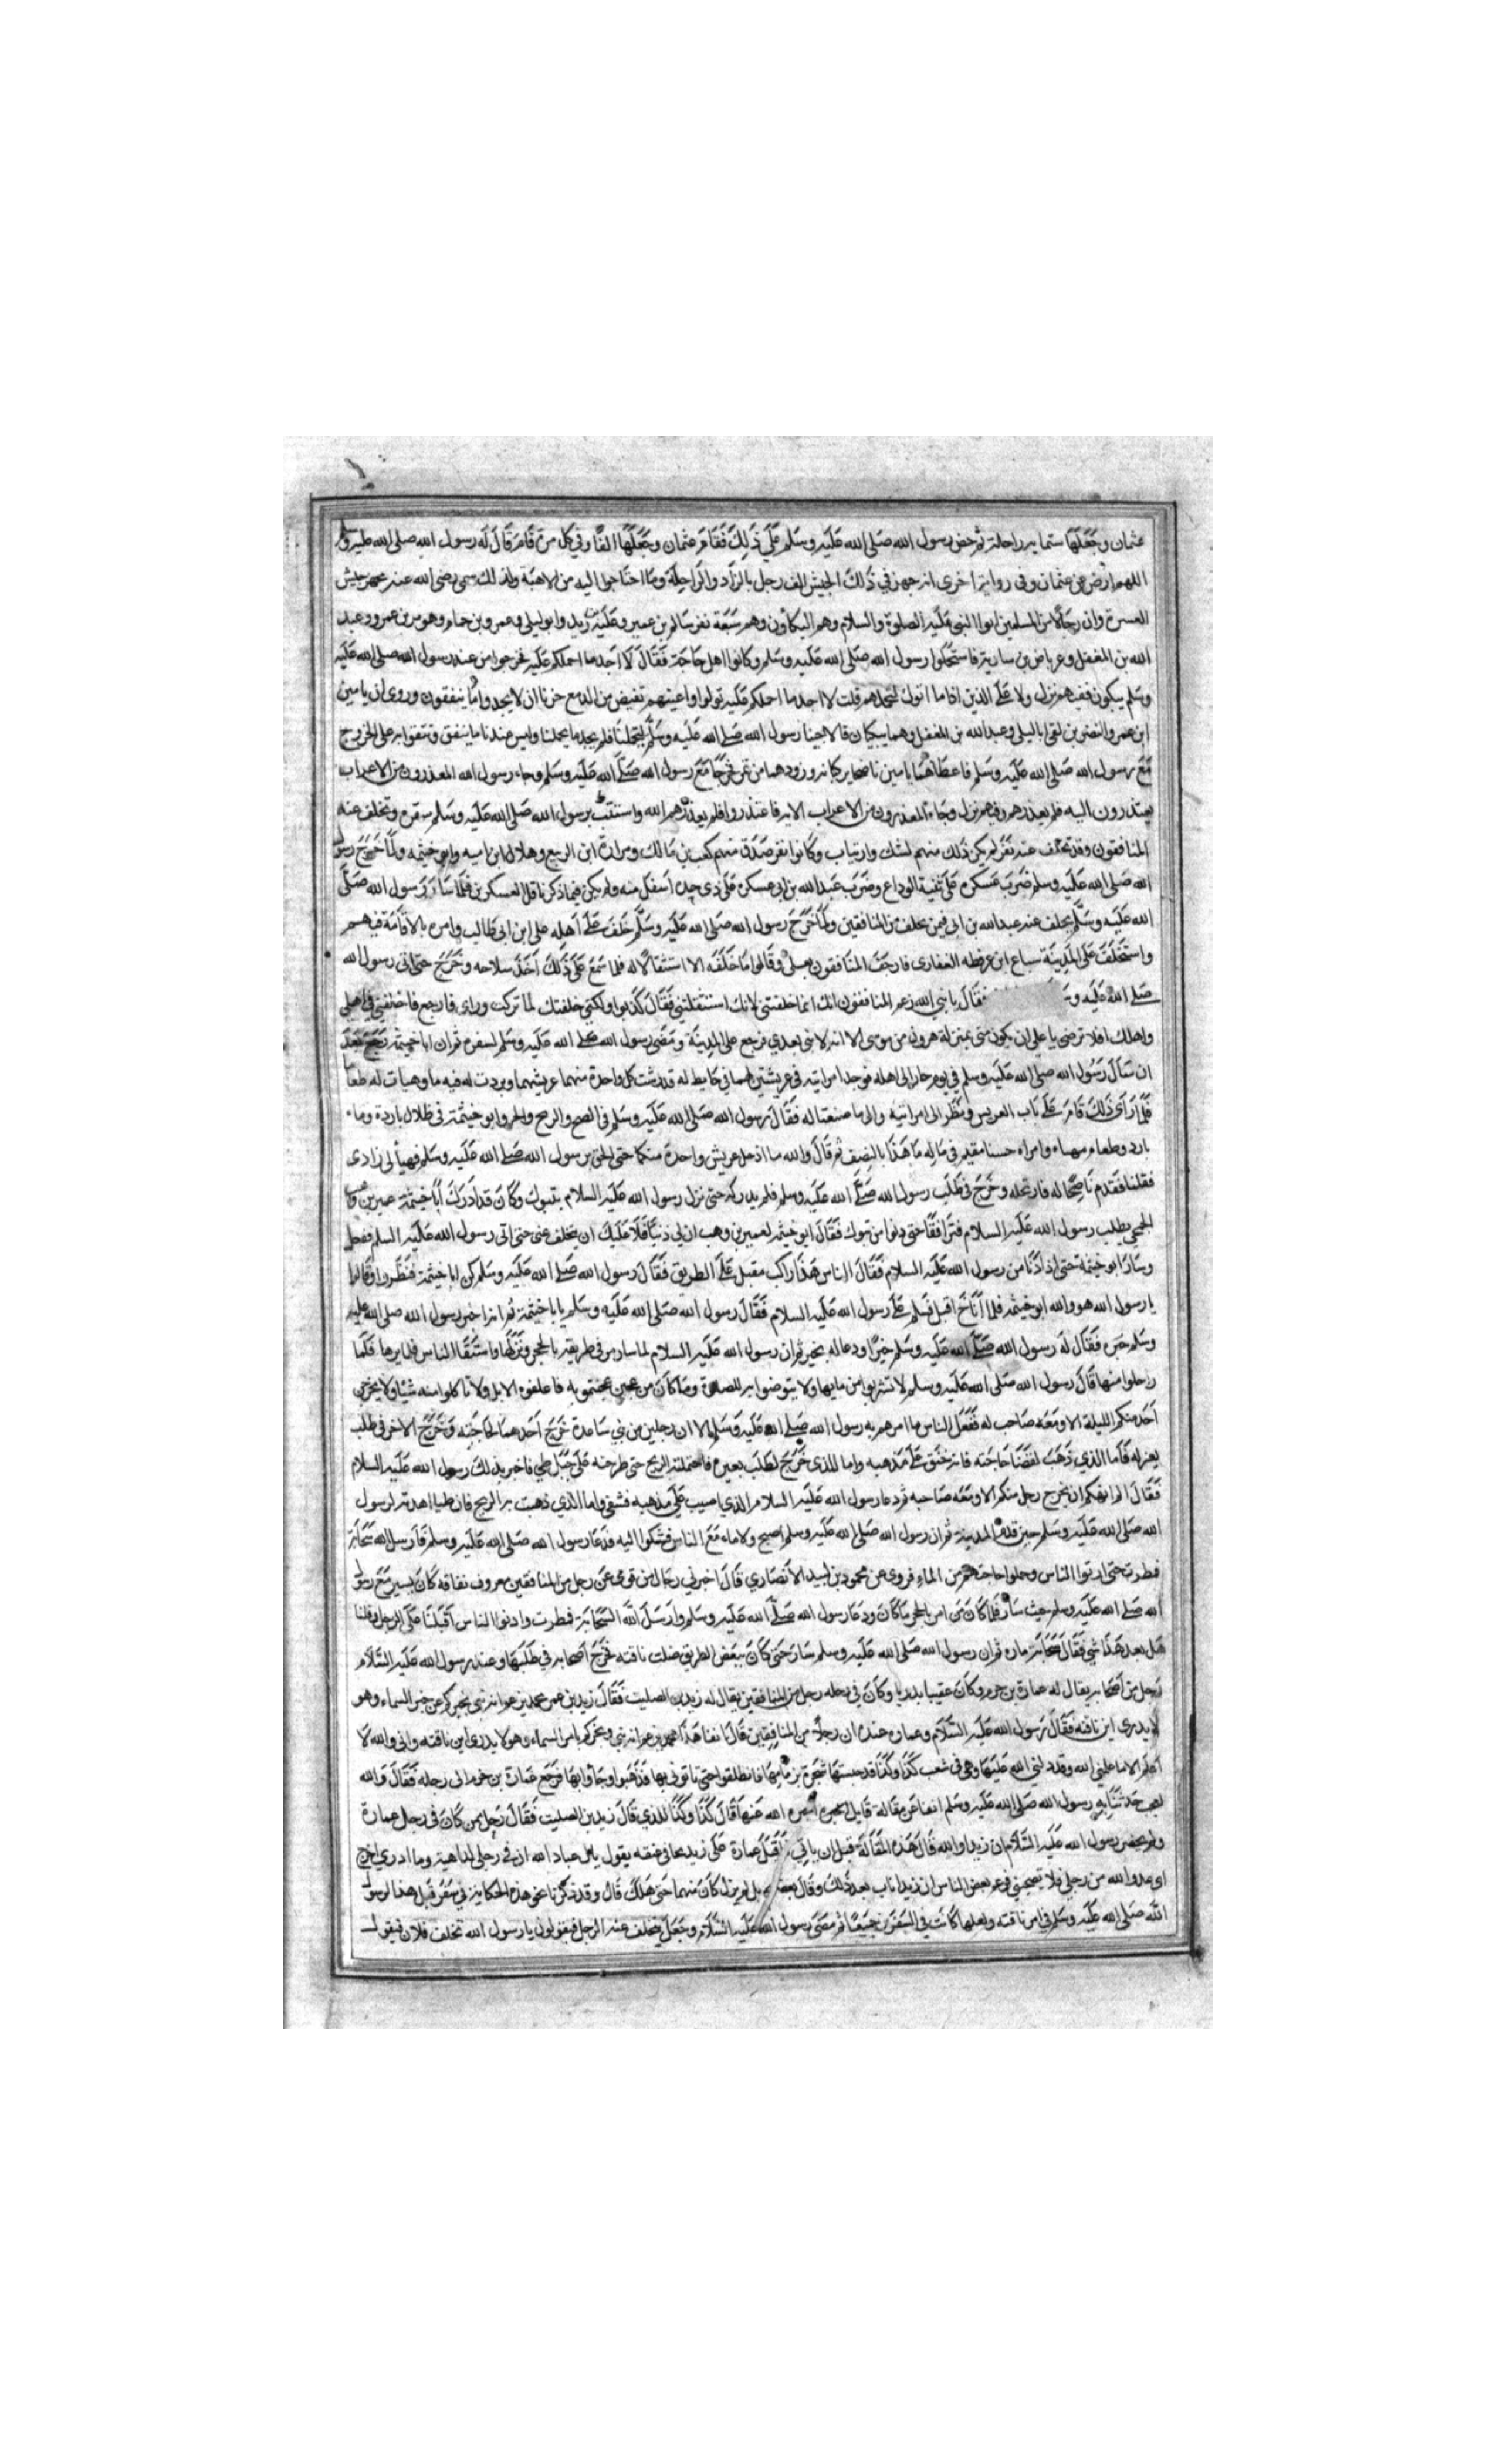 عثمان وجعلها ستماية راحلة ثم حض رسول الله صلى الله عليه وسلم على ذلك فقام عثمان وجعلها الفا وفي كل مرة قام قال له رسول الله صلى الله عليه وسلم
اللهم ارض عن عثمان وفي رواية اخرى انه جهز في ذلك الجيش الف رجل بالزاد والراحلة وما احتاجوا اليه من الاهبة ولذلك سمي رضي الله عنه مجهز جيش
العسرة وان رجالا من المسلمين اتوا النبي عليه الصلوة والسلام وهم البكاؤن وهم سبعة نفر سالم بن عمير وعلبة بن زيد وابو ليلى وعمرو بن حمام وهرمي بن عمرو وعبد
الله بن المغفل وعرباض بن سارية فاستحملوا رسول الله صلى الله عليه وسلم وكانوا اهل حاجة فقال لا اجد ما احملكم عليه فخرجوا من عند رسول الله صلى الله عليه
وسلم يبكون ففيهم نزل ولا على الذين اذا ما اتوك لتحملهم قلت لا اجد ما احملكم عليه تولوا واعينهم تفيض من الدمع حزنا ان لا يجدوا ما ينفقون وروى ان يامين
ابن عمرو النضري لقي ابا ليلى وعبد الله بن المغفل وهما يبكيان قالا جينا رسول الله صلى الله عليه وسلم ليحملنا فلم يجد ما يحملنا وليس عندنا ما ننفق ونتقوا به على الخروج
مع رسول الله صلى الله عليه وسلم فاعطاهما يامين ناضحا يركبانه وزودهما من تمر فخرجا مع رسول الله صلى الله عليه وسلم وجاء رسول الله المعذرون من الاعراب
يعتذرون اليه فلم يعذرهم وفيهم نزل وجاء المعذرون من الاعراب الاية فاعتذروا فلم يعذرهم الله واستتب برسول الله صلى الله عليه وسلم سفره وتخلف عنه
المنافقون وقد تخلف عنه نفر لم يكن ذلك منهم لشك وارتياب وكانوا نفر صدق منهم كعب بن مالك ومرارة ابن الربيع وهلال ابن اميه وابو خيثمه ولما خرج رسول
الله صلى الله عليه وسلم ضرب عسكره على ثنية الوداع وضرب عبد الله بن ابي عسكره على ذي حده اسفل منه ولم يكن فيما ذكر باقل العسكرين فلما سار رسول الله صلى
الله عليه وسلم تخلف عنه عبد الله بن ابي فيمن تخلف من المنافقين ولما خرج رسول الله صلى الله عليه وسلم خلف على اهله علي ابن ابي طالب وامره بالاقامة فيهم
واستخلف على المدينة سباع ابن عرفطه الغفاري فارجف المنافقون بعلي وقالوا ما خلفه الا استثقالا له فلما سمع علي ذلك اخذ سلاحه وخرج حتى اتى رسول الله
صلى الله عليه فقال يا نبي الله زعم المنافقون انك انما خلفتني لانك استثقلتني فقال كذبوا ولكني خلفتك لما تركت وراى فارجع فاخلفني في اهلي
واهلك افلا ترضى يا علي ان يكون مني بمنزلة هرون من موسى الا انه لا نبي بعدي فرجع على المدينة ومضى رسول الله صلى الله عليه وسلم لسفره ثم ان ابا خيثمة رجع بعد
ان سار رسول الله صلى الله عليه وسلم في يوم حار الى اهله فوجد امراتيه في عريشين لهما في حايط له قد رشت كل واحدة منهما عريشهما وبردت له فيه ما وهيات له طعاما
فلما راى ذلك قام على باب العريس ونظر الى امراتيه والى ما صنعتا له فقال رسول الله صلى الله عليه وسلم في الضح والريح والحر وابو خيثمة في ظلال باردة وماء
بارد وطعام مهياء وامراه حسنا مقيم في ماله ما هذا بالنصف ثم قال والله ما ادخل عريش واحدة منكما حتى الحق برسول الله صلى الله عليه وسلم فهيأ لي زادى
ففعلتا فقدم ناضحا له فارتحله وخرج في طلب رسول الله صلى الله عليه وسلم فلم يدركه حتى نزل رسول الله عليه السلام بتبوك وكان قد ادرك ابا خيثمة عمير بن وهب
الجمحي يطلب رسول الله عليه السلام فترافقا حتى دنوا من تبوك فقال ابو خيثمه لعمير بن وهب ان لي ذنبا فلا عليك ان يتخلف عني حتى اتى رسول الله عليه السلم ففعل
وسار ابو خيثمة حتى اذا دنا من رسول الله عليه السلام فقال الناس هذا راكب مقبل على الطريق فقال رسول الله صلى الله عليه وسلم كن ابا خيثمة فنظروا وقالوا
يا رسول الله هو والله ابو خيثمه فلما اناخ اقبل فسلم على رسول الله عليه السلام فقال رسول الله صلى الله عليه وسلم يا با خيثمة ثم انه اخبر رسول الله صلى الله عليه
وسلم خبره فقال له رسول الله صلى الله عليه وسلم خيرا ودعا له بخير ثم ان رسول الله عليه السلام لما سار مر في طريقه بالحجر ونزلها واستقا الناس من بيرها فلما
رحلوا منها قال رسول الله صلى الله عليه وسلم لا تشربوا من مايها ولا يتوضوا به للصلاة وما كان من عجين عجنتموه به فاعلفوه الابل ولا تاكلوا منه شيئا ولا يخرجن
احد منكم الليلة الا ومعه صاحب له ففعل الناس ما امرهم به رسول الله صلى الله عليه وسلم الا ان رجلين من بني ساعدة خرج احدهما لحاجته وخرج الاخر في طلب
بعير له فاما الذي ذهب لقضا حاجته فانه خنق على مذهبه واما للذي خرج لطلب بعيره فاحتملته الريح حتى طرحته على جبل طي فاخبر بذلك رسول الله عليه السلام
فقال الم انهكم ان يخرج رجل منكم الا ومعه صاحبه ثم دعا رسول الله عليه السلام الذي اصيب على مذهبه فشفي واما الذي ذهبت به الريح فان طيا اهدته لرسول
الله صلى الله عليه وسلم حين قدم المدينة ثم ان رسول الله صلى الله عليه وسلم اصبح ولا ماء مع الناس فشكوا اليه فدعا رسول الله صلى الله عليه وسلم فارسل الله سحابة
فمطرت حتى ارتوا الناس وحملوا حاجتهم من الماء فروى عن محمود بن لبيد الانصاري قال اخبرني رجال من قومى عن رجل من المنافقين معروف نفاقه كان يسير مع رسول
الله صلى الله عليه وسلم حيث سار فلما كان من امر الحجر ما كان ودعا رسول الله صلى الله عليه وسلم وارسل الله السحابة فمطرت وارتوا الناس اقبلنا على الرجل وقلنا
هل بعد هذا شي فقال سحابة ماره ثم ان رسول الله صلى الله عليه وسلم سار حتى كان ببعض الطريق ضلت ناقته فخرج اصحابه في طلبها وعند رسول الله عليه السلام
رجل من اصحابه يقال له عمارة بن حزم وكان عقبيا بدريا وكان في رحله رجل من المنافقين يقال له زيد بن الصليت فقال زيد بن عمر محمد يزعم انه نبي يخبركم عن خبر السماء وهو
لا يدرى اين ناقته فقال رسول الله عليه السلام وعماره عنده ان رجلا من المنافقين قال انفا هذا محمد يزعم انه نبي ويخبركم بامر السماء وهو لا يدرى اين ناقته وانى والله لا
اعلم الا ما علمني الله وقد دلني الله عليها وهى فى شعب كذا وكذا قد حبستها شجرة بزمامها فانطلقوا حتى تاتوني بها فذهبوا وجاؤا بها فرجع عمارة بن حزم الى رحله فقال والله
لعجب حدثنا به رسول الله صلى الله عليه وسلم انفا عن مقالة قايل اخبره الله عنها قال كذا وكذا للذي قال زيد بن الصليت فقال رجل ممن كان فى رحل عمارة
ولم يحضر رسول الله عليه السلام ان زيدا والله قال هذه المقالة قبل ان ياتي فاقبل عمارة على زيد يجا فى عنقه يقول يال عباد الله ان في رحلي لداهية وما ادري اخرج
اى عدو الله من رحلي فلا تصحبني فزعم بعض الناس ان زيدا تاب بعد ذلك وقال بعضهم بل لم يزل كان متهما حتى هلك قال وقد ذكرنا نحو هذه الحكاية في سفر قبل هذا لرسول
الله صلى الله عليه وسلم في امر ناقته ولعلها كانت في السفرين جميعا ثم مضى رسول الله عليه السلام وجعل يتخلف عنه الرجل فيقولون يا رسول الله تخلف فلان فيقول